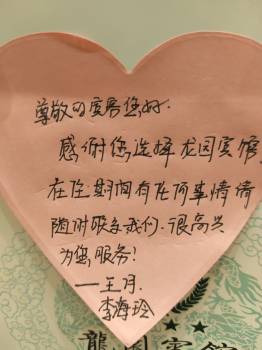 尊敬的宾客您好.
感谢您选择龙园宾馆
在住期间有任何事情请
随时联系我们.很高兴
为您服务!
—王月.
李海玲
龍園賓館